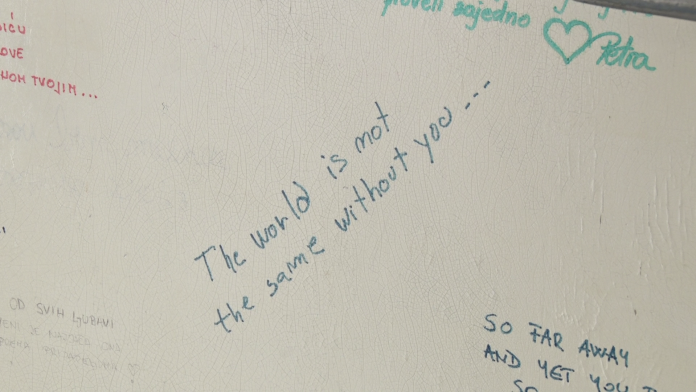 OVE
TVOJIM...
proveli zajedno
Petra
The world is not
the same without you...
OD SVIH LJUBAVI
SO FAR AWAY
AND YET YOU
SO